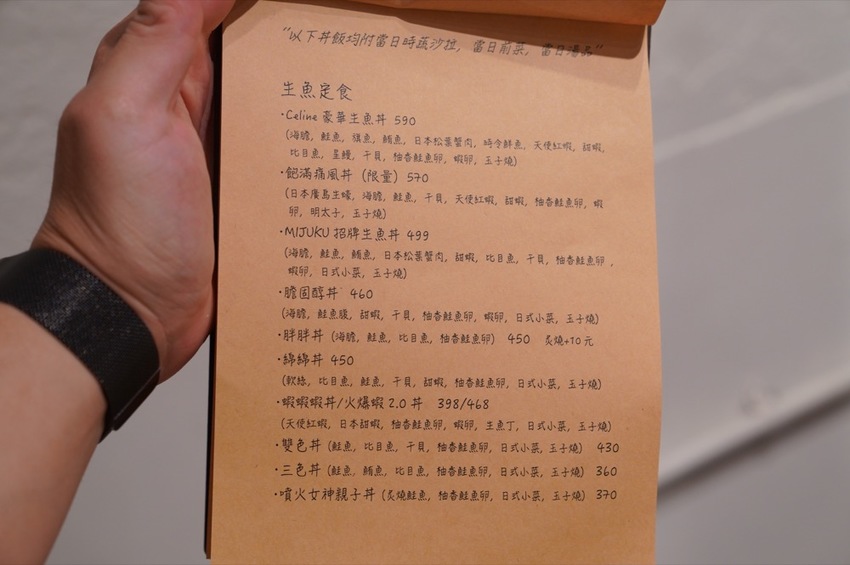 "以下丼飯均附當日時蔬沙拉, 當日前菜, 當日湯品"
生魚定食
·Celine 豪華生魚丼 590
(海膽, 鮭魚, 旗魚, 鮪魚, 日本松葉蟹肉, 時令鮮魚, 天使紅蝦, 甜蝦,
比目魚, 星鰻, 干貝, 柚香鮭魚卵, 蝦卵, 玉子燒)
·飽滿痛風丼 (限量) 570
(日本廣島生蠔, 海膽, 鮭魚, 干貝, 天使紅蝦, 甜蝦, 柚香鮭魚卵, 蝦
卵, 明太子, 玉子燒)
·MIJUKU 招牌生魚丼 499
(海膽, 鮭魚, 鮪魚, 日本松葉蟹肉, 甜蝦, 比目魚, 干貝, 柚香鮭魚卵,
蝦卵, 日式小菜, 玉子燒)
·膽固醇丼 460
(海膽, 鮭魚腹, 甜蝦, 干貝, 柚香鮭魚卵, 蝦卵, 日式小菜, 玉子燒)
·胖胖丼 (海膽, 鮭魚, 比目魚, 柚香鮭魚卵) 450 炙燒+10元
·綿綿丼 450
(軟絲, 比目魚, 鮭魚, 干貝, 甜蝦, 柚香鮭魚卵, 日式小菜, 玉子燒)
·蝦蝦蝦丼/火爆蝦 2.0 丼 398/468
(天使紅蝦, 日本甜蝦, 柚香鮭魚卵, 蝦卵, 生魚丁, 日式小菜, 玉子燒)
·雙色丼 (鮭魚, 比目魚, 干貝, 柚香鮭魚卵, 日式小菜, 玉子燒) 430
·三色丼 (鮭魚, 鮪魚, 比目魚, 柚香鮭魚卵, 日式小菜, 玉子燒) 360
·噴火女神親子丼 (炙燒鮭魚, 柚香鮭魚卵, 日式小菜, 玉子燒) 370